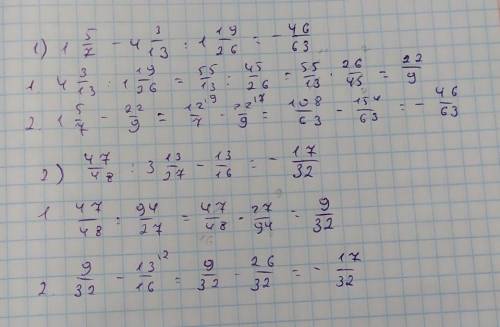 1) 1 5/7 - 4 3/13 : 1 19/26 = - 46/63
1. 4 3/13 : 1 19/26 = 55/13 : 45/26 = 55/13 · 26/45 = 22/9
2. 1 5/7 - 22/9 = 12^9/7 - 22^7/9 = 108/63 - 154/63 = - 46/63
2) 47/48 : 3 13/27 - 13/16 = - 17/32
1 47/48 : 94/27 = 47/48 · 27/94 = 9/32
2. 9/32 - 13^2/16 = 9/32 - 26/32 = - 17/32